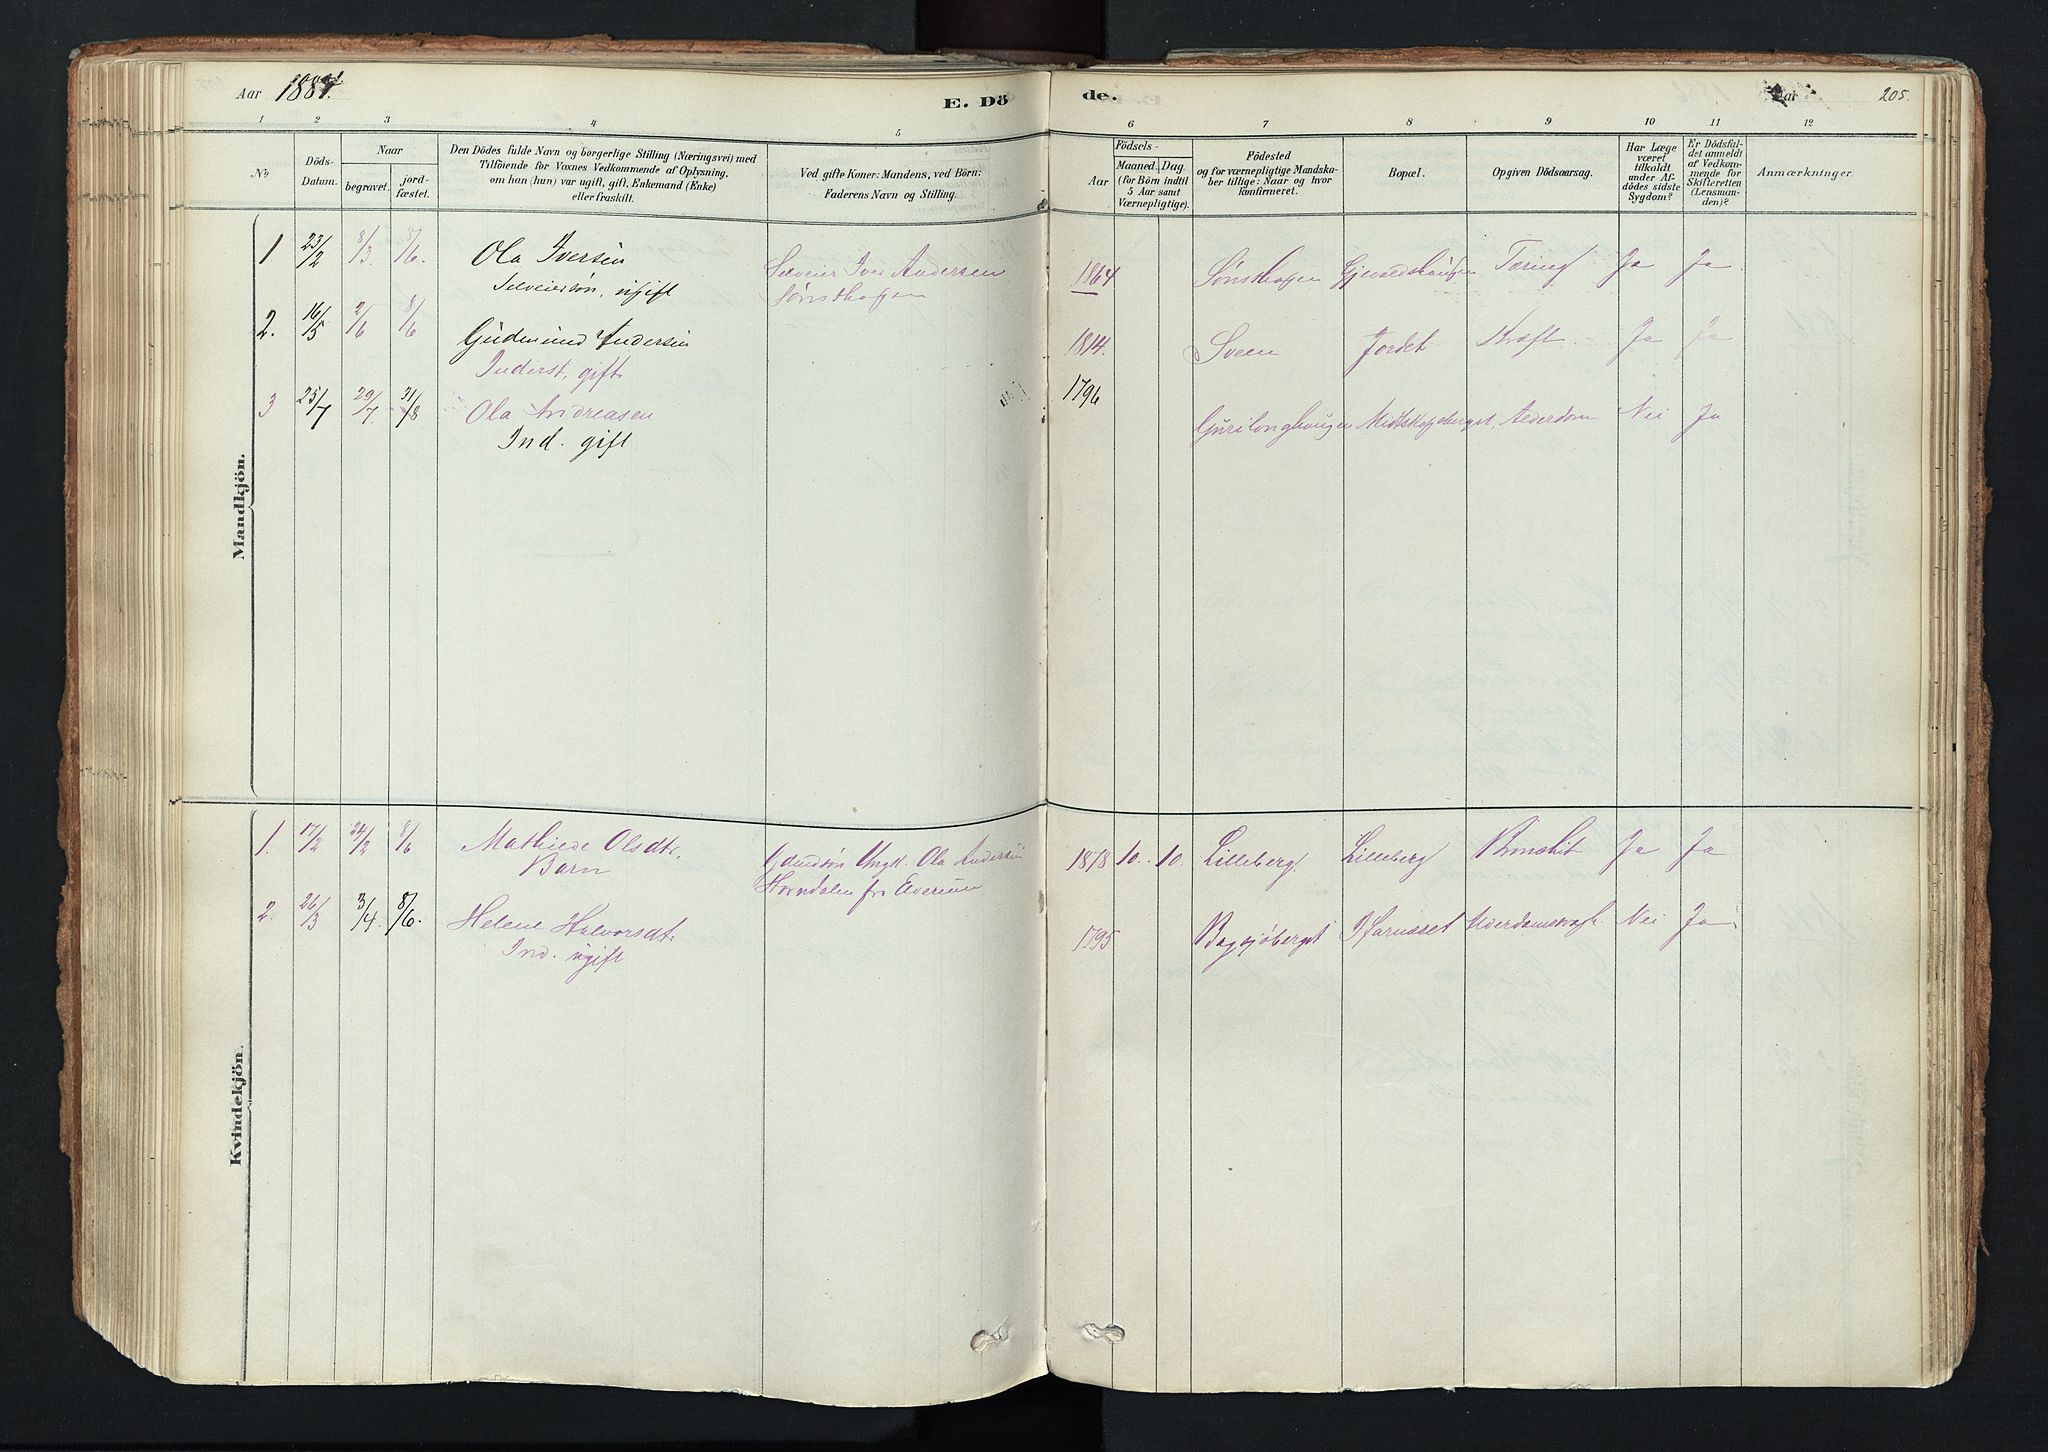 Aar 1881.
E. Döde.
Aar
205.
1 2 3 4 5 6 7 8 9 10 11 12
No
Döds-
Datum.
Naar
begravet.
jord-
fæstet.
Den Dödes fulde Navn og borgerlige Stilling (Næringsvei) med
Tilföiende for Voxnes Vedkommende af Oplysning,
om han (hun) var ugift, gift, Enkemand (Enke)
eller fraskilt.
Ved gifte Koner: Mandens, ved Börn:
Faderens Navn og Stilling.
Födsels-
Aar
Maaned. Dag.
(for Börn indtil
5 Aar samt
Værnepligtige).
Födested
og for værnepligtige Mandska-
ber tillige: Naar og hvor
konfirmeret.
Bopæl.
Opgiven Dödsaarsag.
Har Læge
været
tilkaldt
under Af-
dödes sidste
Sygdom?
Er Dödsfal-
det anmeldt
af Vedkom-
mende for
Skifteretten
(Lensman-
den)?
Anmærkninger.
Mandkjön.
1 23/2 8/3. 8/6. Ola Iversen Selveier Iver Andersen 1864 Sønsthagen Tæring Ja Ja
Selveiersøn, ugift Sønsthagen
2. 16/5 2/6 8/6 Gudmund Andersen 1814. Sveen Jordet Kræft Ja Ja
Inderst, gift
3 25/7 29/7. 31/8 Ola Andreasen 1796 Midtskogberget, Alderdom Nei Ja
Ind. gift
Kvindekjön.
1. 17/2 24/2 8/6 Mathilde Olsdtr. Ungk. Ola Andersen 1878 10. 10. Lilleberg. Lilleberg Ja Ja
Barn Horndalen fr. Elverum
2. 26/3 3/4. 8/6. Helene Halvorsdtr. 1795 Bagsjøberget Nei Ja.
Ind. ugift